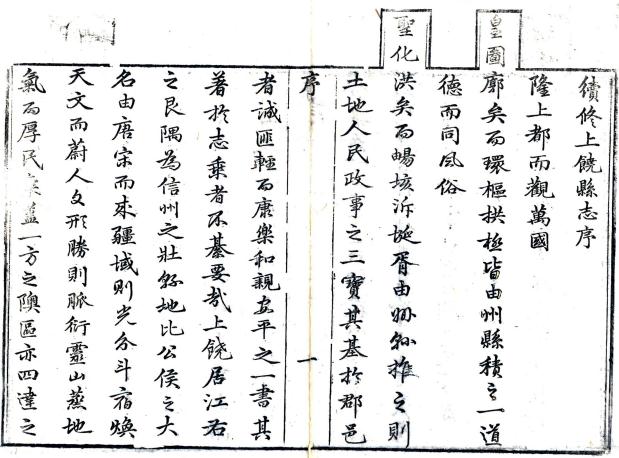 續修上饒縣志序
隆上都而觀萬國
皇圖
廓矣而環樞拱極皆由州縣積之一道
德而同風俗
聖化
洪矣而暢垓泝埏胥由州縣推之則
土地人民政事之三寶其基於郡邑
序
一
者誠匪輕而康樂和親安平之一書其
著於志乘者不綦要哉上饒居江右
之艮隅為信州之壯縣地比公侯之大
名由唐宋而來疆域則光分斗宿煥
天文而蔚人文形勝則脈衍靈山蒸地
氣而厚民蓋一方之隩區亦四達之